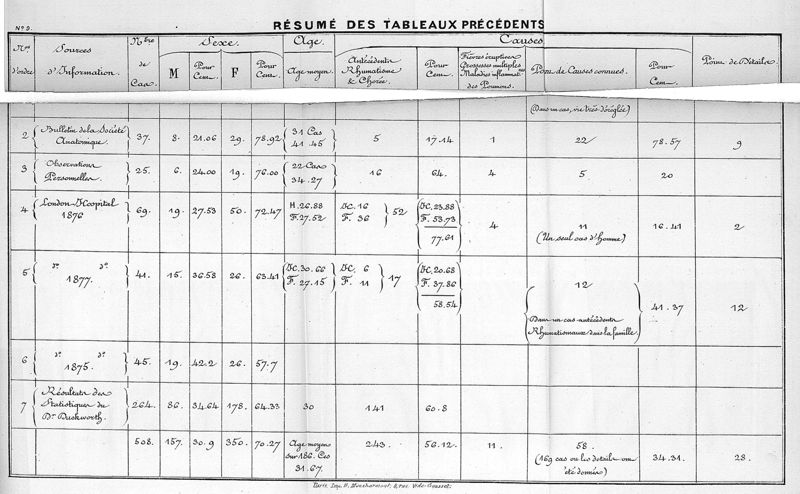 Nº 9.
RÉSUMÉ DES TABLEAUX PRÉCÉDENTS
Nros d'ordre
Sources d'Information.
Nbre de Cas.
Sexe.
M
Pour Cent.
F
Pour Cent.
Age.
Age moyen
Causes
Antécédents Rhumatisme & Chorée.
Pour Cent.
Fièvres éruptives Grossesses multiples Maladies inflammat. des Poumons.
Point de Causes connues.
Pour Cent.
Point de Détails
(Dans un cas, vie très déréglée)
2 Bulletin de la Société Anatomique. 37. 8. 21.06 29. 78.92 31 Cas 41.45 5 17.14 1 22 78.57 9
3 Observations Personnelles. 25. 6. 24.00 19. 76.00 22 Cas 34.27 16 64. 4 5 20
4 London-Hospital 1876 69. 19. 27.53 50. 72.47 H. 26.88 F. 27.52 H. 16 F. 36 52 H. 23.88 F. 53.73 77.61 4 11 (Un seul cas d'homme) 16.41 2
5 do. do. 1877. 41. 15. 36.58 26. 63.41 H. 30.66 F. 27.15 H. 6 F. 11 17 H. 20.68 F. 37.86 58.54 12 (Dans un cas antécédents Rhumatismaux dans la famille. 41.37 12
6 do. do. 1875. 45. 19. 42.2 26. 57.7
7 Résultats des Statistiques du Dr. Duckworth. 264. 86. 34.64 178. 64.33 30 141 60.8
508. 157. 30.9 350. 70.27 Age moyen sur 186. Cas 31.67. 243. 56.12. 11. 58. (169 cas où les détails ont été donnés) 34.31. 28.
Paris. Imp. H.